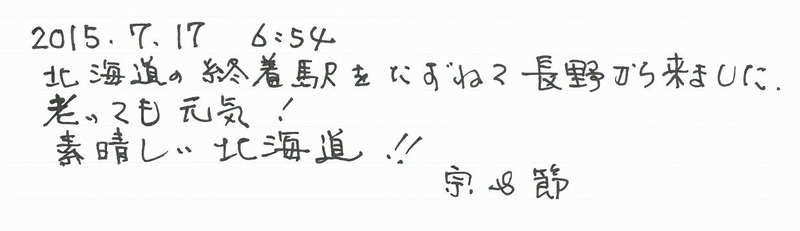 2015.7.17 6:54
北海道の終着駅をたずねて長野から来ました.
老いても元気!
素晴しい北海道!!
宗 節